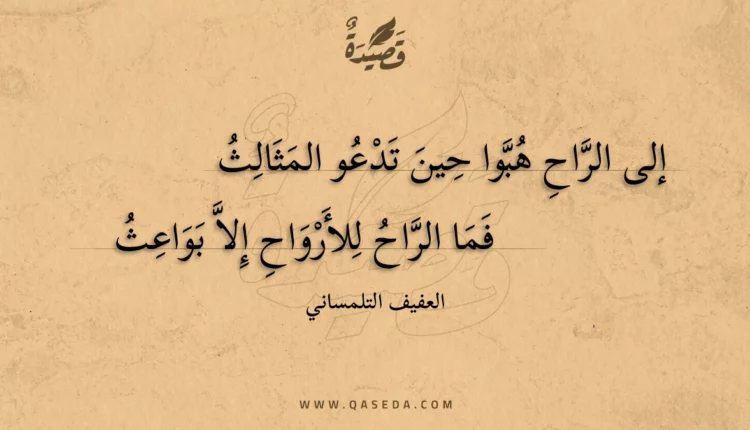 قَصِيْدَةٌ
إلى الرَّاحِ هُبَّوا حِينَ تَدْعُو المَثَالِثُ
فَمَا الرَّاحُ لِلأَرْوَاحِ إِلاَّ بَوَاعِثُ
العفيف التلمساني
WWW.QASEDA.COM